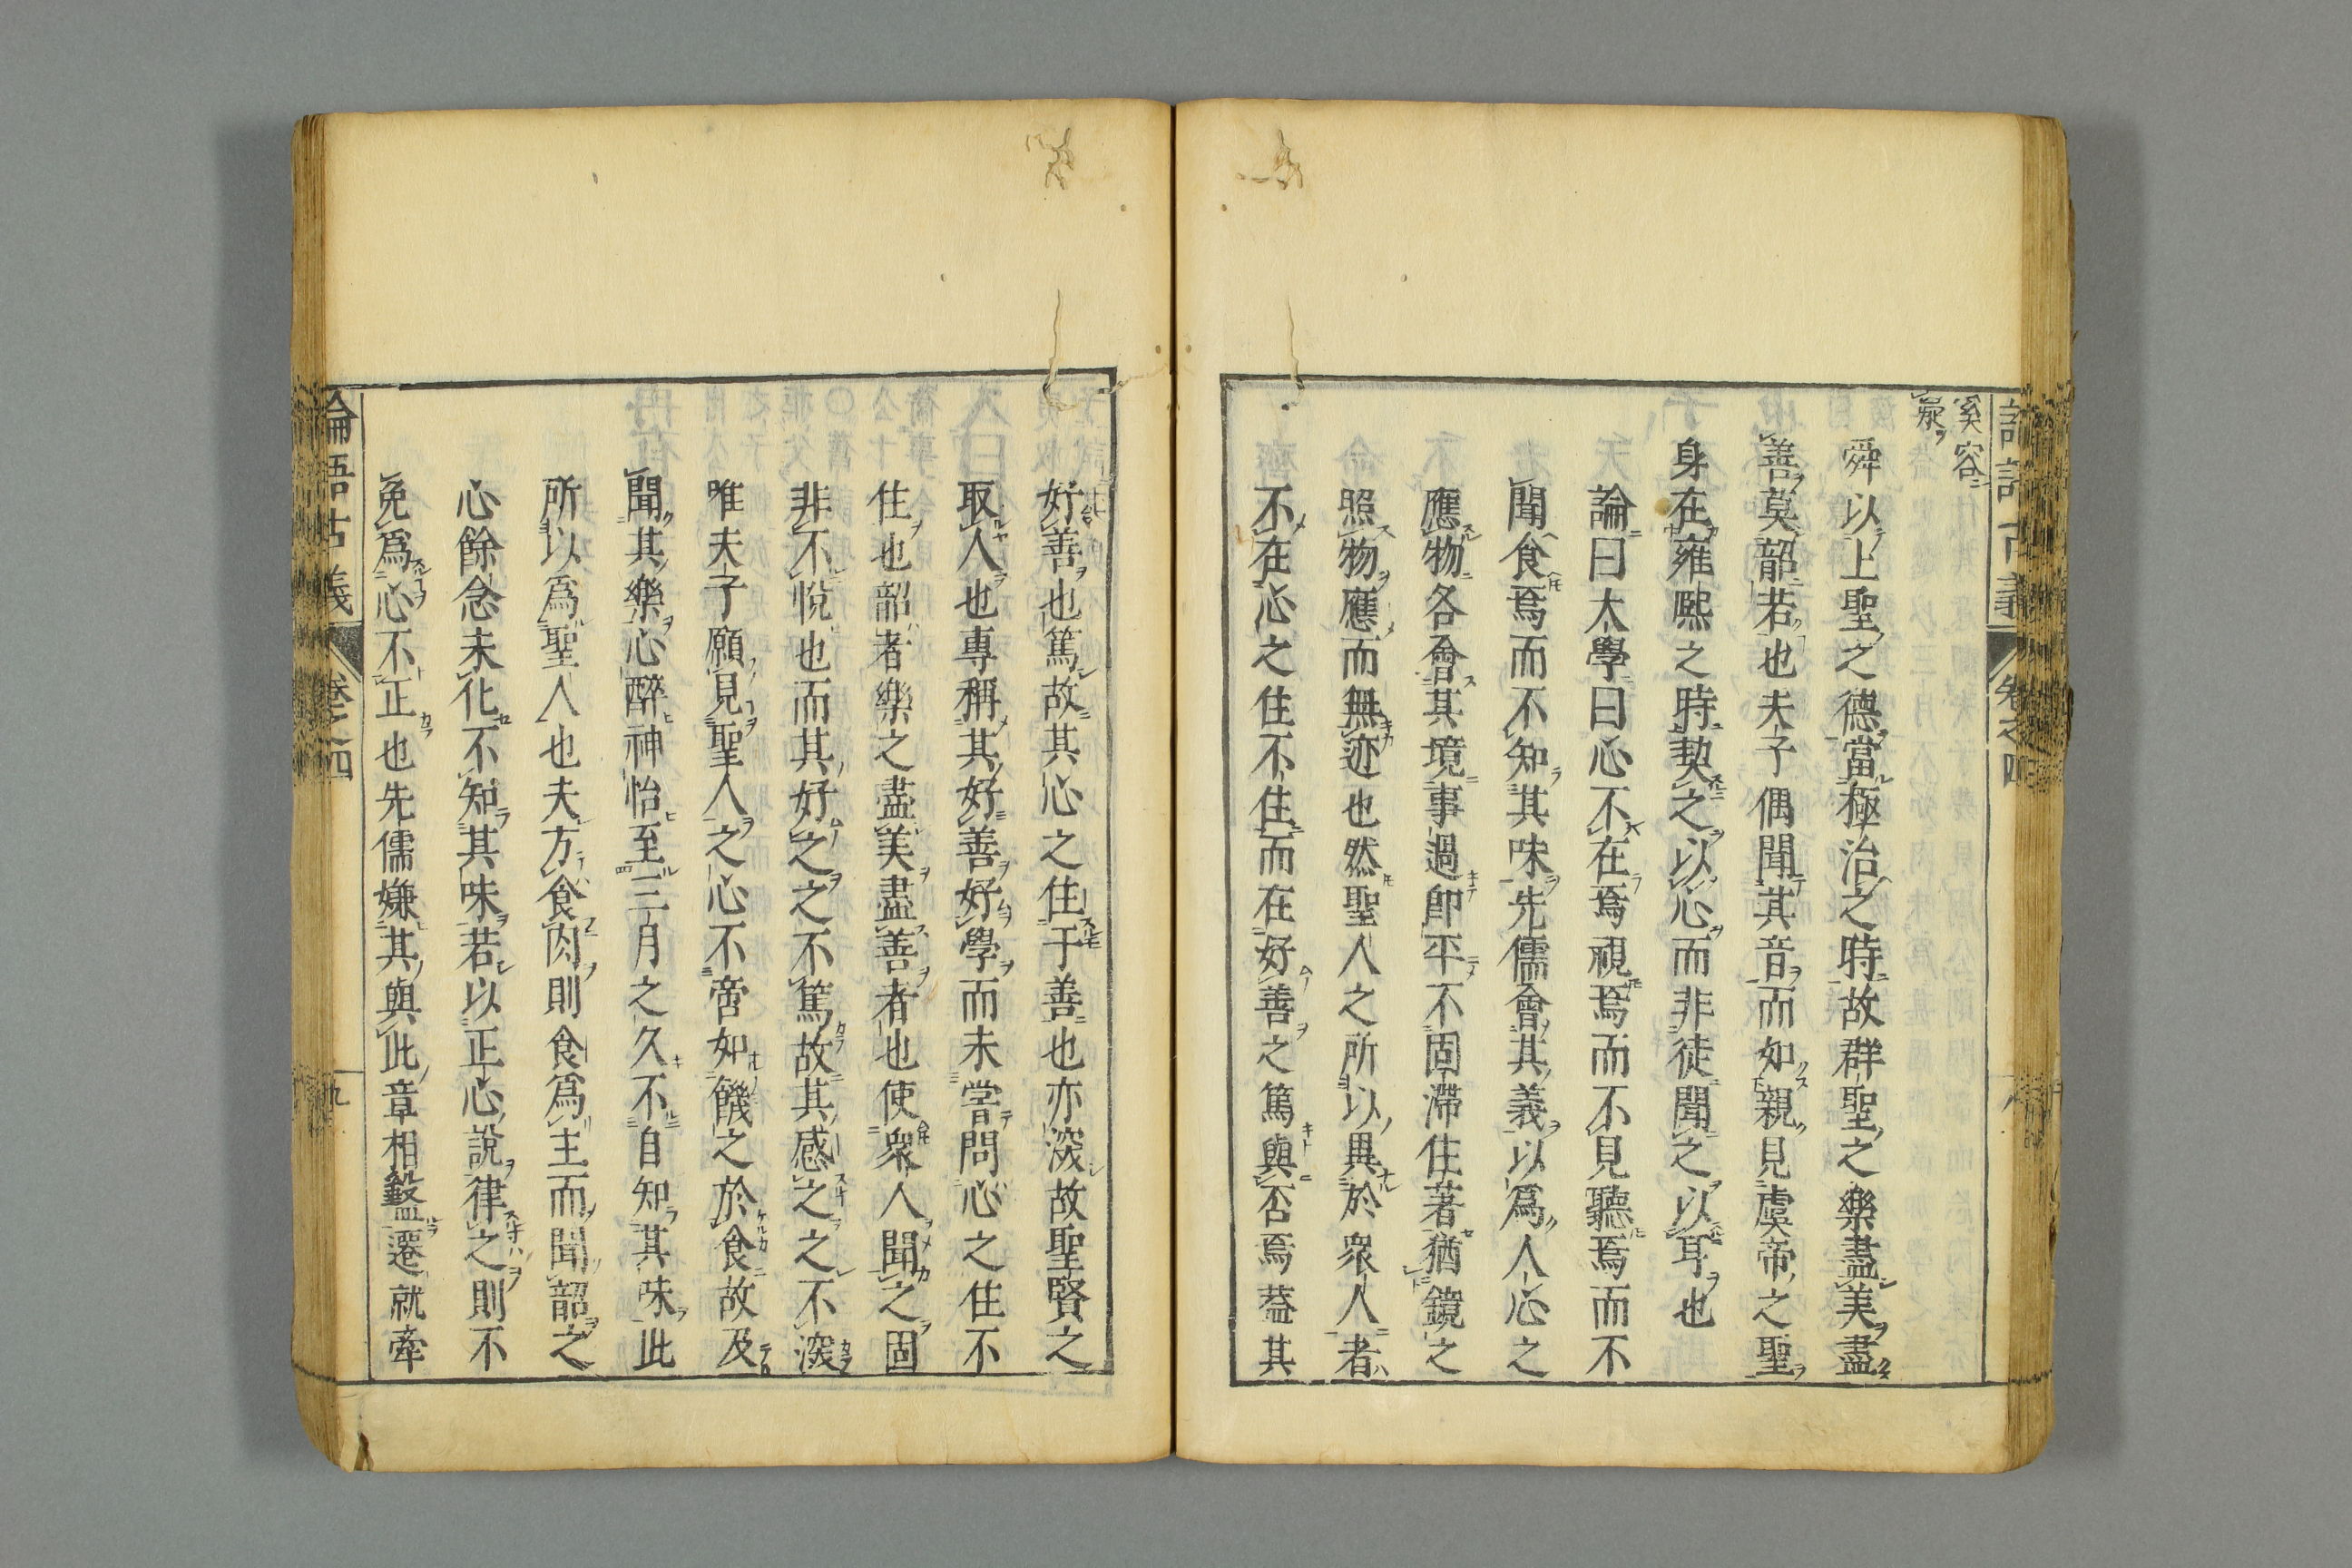 論語古義 卷之四
奚容
衆
舜以上聖之德當極治之時故群聖之樂盡美盡
善莫韶若也夫子偶聞其音而如親見虞帝之聖
身在雍熙之時契之以心而非徒聞之以耳也
論曰大學曰心不在焉視焉而不見聽焉而不
聞食焉而不知其味先儒會其義以爲人心之
應物各會其境事過卽平不固滯住著猶鏡之
照物應而無迹也然聖人之所以異於衆人者
不在心之住不住而在好善之篤與否焉葢其
好善也篤故其心之住于善也亦深故聖賢之
取人也專稱其好善好學而未嘗問心之住不
住也韶者樂之盡美盡善者也使衆人聞之固
非不悅也而其好之之不篤故其感之之不深
唯夫子願見聖人之心不啻如饑之於食故及
聞其樂心醉神怡至三月之久不自知其味此
所以爲聖人也夫方食肉則食爲主而聞韶之
心餘念未化不知其味若以正心說律之則不
免爲心不正也先儒嫌其與此章相盭遷就牽
論語古義 卷之四 九